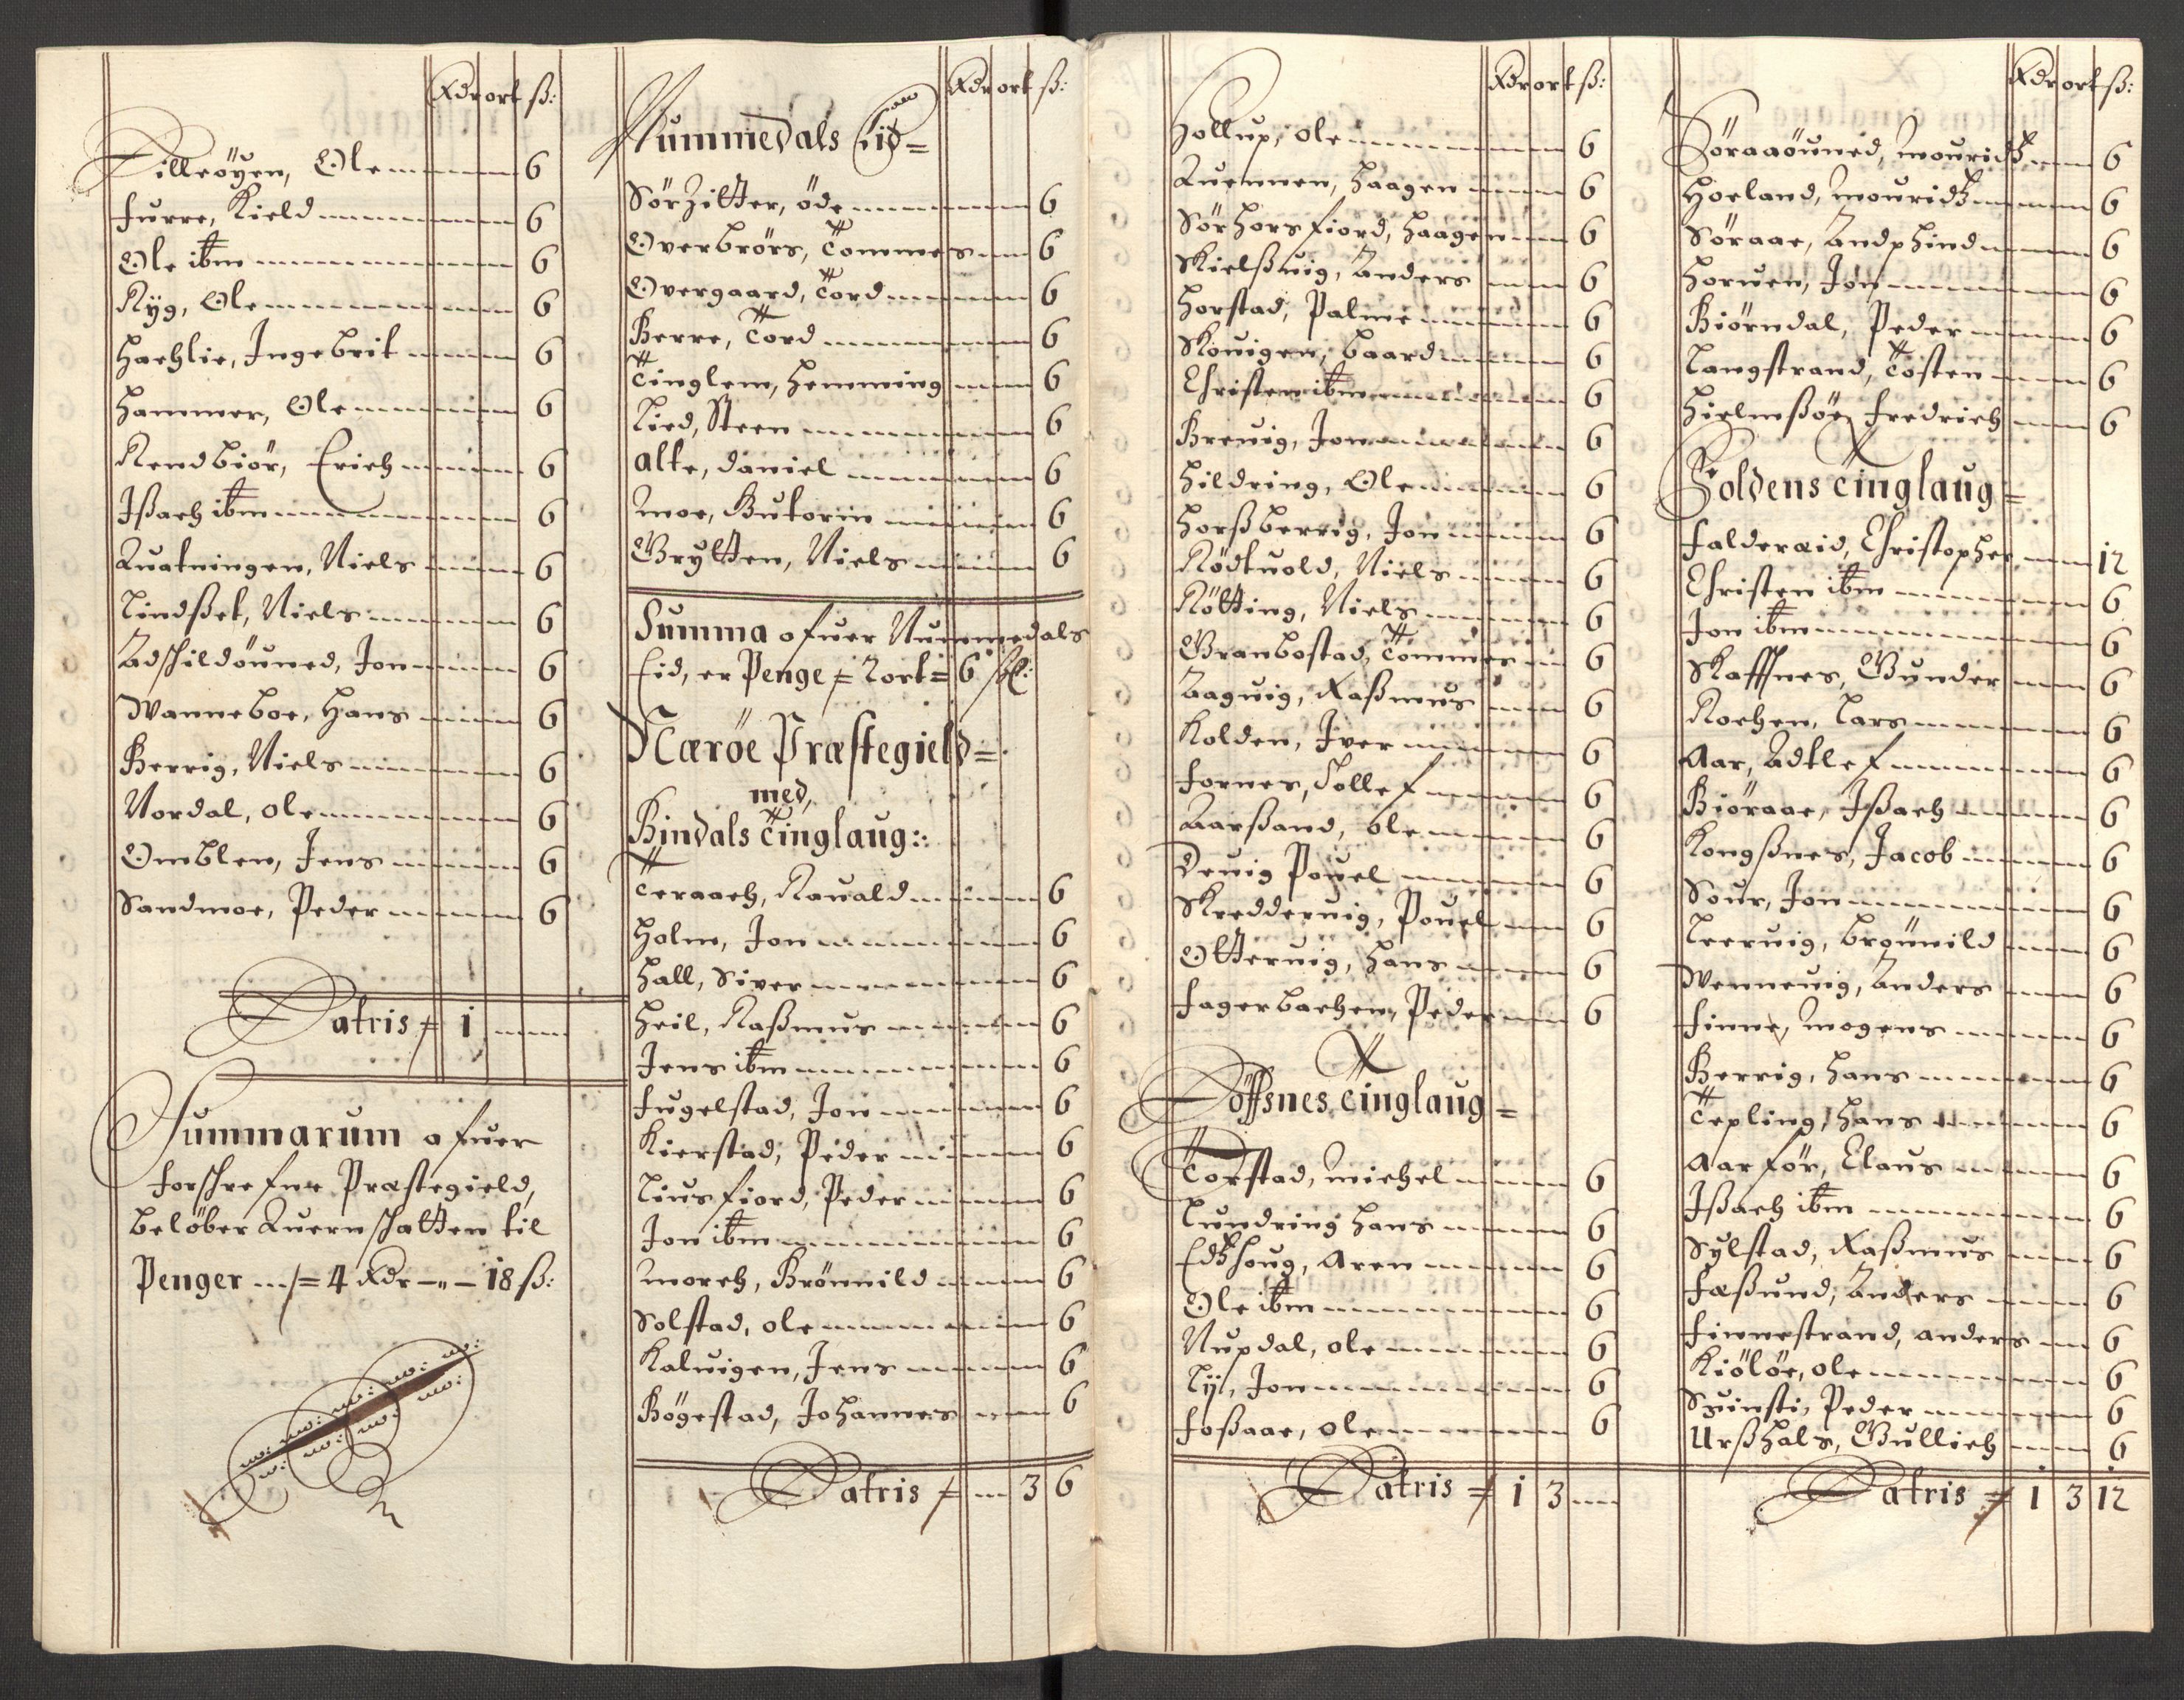 Rdr ort ß:
Tilleöyen, Ole 6
Furre, Kield 6
Ole ibm 6
Ryg, Ole 6
Hachlie, Ingebrit 6
Hammer, Ole 6
Rendbiör, Erich 6
Ißach ibm 6
Quatningen, Niels 6
Lindßet, Niels 6
Adschildöuned, Jon 6
Wanneboe, Hans 6
Berrig, Niels 6
Nordal, ole 6
Omblen, Jens 6
Sandmoe, Peder 6
Latris = 1
Summarum ofuer
forschrefne Præstegield,
belöber Quernschatten til
Penger = 4 Rdr – „ – 18 ß:
Rdr ort ß:
Nummedals Eid =
Sörzitter, öde 6
Overbrörs, Tommes 6
Overgaard, Tord 6
Berre, Tord 6
Tinglem, Hemming 6
Lied, Steen 6
alte, daniel 6
Moe, Gutorm 6
Grytten, Niels 6
Summa ofuer Nummedals
Eid, er Penge = 2 ort = 6 sk:
Nærøe Præstegield =
med,
Bindals Tinglaug:
Teraach, Rauald 6
Holm, Jon 6
Hall, Siver 6
Heil, Raßmus 6
Jens ibm 6
Fugelstad, Jon 6
Kierstad, Peder 6
Liusfiord, Peder 6
Jon ibm 6
Morch, Brönnild 6
Solstad, ole 6
Kaluigen, Jens 6
Bögestad, Johannes 6
Latris = 3 6
Rdr ort ß:
Hollup, ole 6
Quennen, Haagen 6
Sörhorsfiord, Haagen 6
Skielßuig, Anders 6
Horstad, Palme 6
Skouigen, Baard 6
Christen ibm 6
Breuig, Jon 6
Hildring, Ole 6
Horßberrig, Jon 6
Rödtuold, Niels 6
Rötting, Niels 6
Granbostad, Tommes 6
Aaguig, Raßmus 6
Kolden, Iver 6
Fornes, Tollef 6
Aarßand, ole 6
Deuig Pouel 6
Skredderuig, Pouel 6
Otteruig, Hans 6
Fagerbachen, Peder 6
Löffsnes Tinglaug =
Torstad, Michel 6
Lundring Hans 6
Edtzhoug, Aren 6
Ole ibm 6
Nupdal, ole 6
Lÿ, Jon 6
Foßaae, ole 6
Latris = 1 3
Rdr ort ß:
Söraaöuned, Mouridtz 6
Hoeland, Mouridtz 6
Söraae, Andphind 6
Horuen, Jon 6
Biörndal, Peder 6
Langstrand, Tosten 6
Hielmßöe, Fredrich 6
Foldens Tinglaug =
Falderæid, Christopher 12
Christen ibm 6
Jon ibm 6
Skaffnes, Gunder 6
Rochen, Lars 6
Aar, Adtlef 6
Biöraae, Ißach 6
Kongßnes, Jacob 6
Sour, Jon 6
Leeruig, Brönnild 6
Wenneuig, Anders 6
Finne, Mogens 6
Berrig, Hans 6
Tepling, Hans 6
Aarför, Claus 6
Ißach ibm 6
Sylstad, Raßmus 6
Fæßund, Anders 6
Finnestrand, anders 6
Kiölöe, ole 6
Suinsti, Peder 6
Urßhals, Gullich 6
Latris = 1 3 12